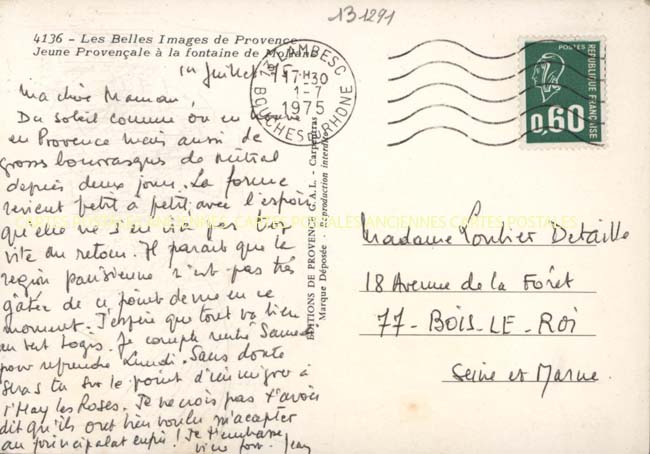 131291
4136 - Les Belles Images de Provence
Jeune Provençale à la fontaine de
LAMBESC
17 H 30
1-7
1975
BOUCHES-DU-RHÔNE
POSTES
RÉPUBLIQUE FRANÇAISE
0,60
1er Juillet 75
Ma chère Maman,
Du soleil comme on en trouve
en Provence mais aussi de
grosses bourrasques de mistral
depuis deux jours. La forme
revient petit à petit, avec l'espoir
qu'elle ne s'en ira pas trop
vite du retour. Il parait que la
région parisienne n'est pas très
gâtée de ce point de vue en ce
moment. J'espère que tout va bien
au vert logis. Je compte rentrer Samedi
pour reprendre Lundi. Sans doute
seras tu sur le point d'émigrer à
l'Hay les Roses. Je ne crois pas t'avoir
dit qu'ils ont bien voulu m'accepter
au principalat enfin ! Je t'embrasse
bien fort. Jean
EDITIONS DE PROVENCE G.A.L. - Carpentras
Marque Déposée - Reproduction interdite
CARTES POSTALES ANCIENNES CARTES POSTALES
Madame Loubier Detaille
18 Avenue de la Forêt
77 - BOIS-LE-ROI
Seine et Marne